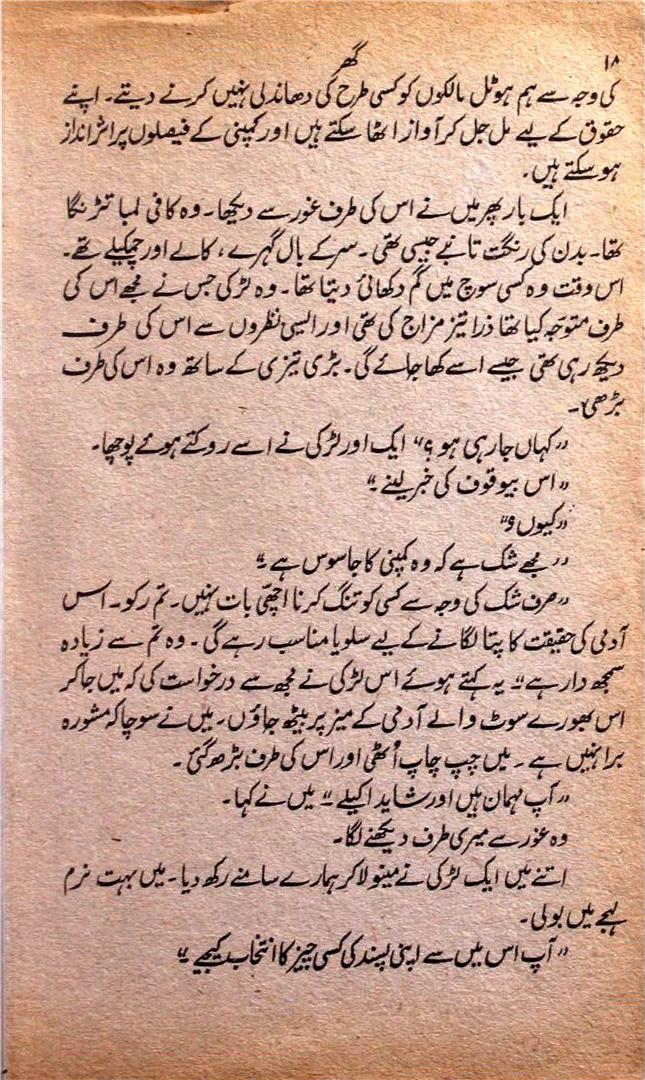 ۱۸
گھر
کی وجہ سے ہم ہوٹل مالکوں کو کسی طرح کی دھاندلی نہیں کرنے دیتے۔ اپنے
حقوق کے لیے مل جل کر آواز اٹھا سکتے ہیں اور کمپنی کے فیصلوں پر اثر انداز
ہو سکتے ہیں۔
ایک بار پھر میں نے اس کی طرف غور سے دیکھا۔ وہ کافی لمبا تڑنگا
تھا۔ بدن کی رنگت تانبے جیسی تھی۔ سر کے بال گہرے، کالے اور چمکیلے تھے۔
اس وقت وہ کسی سوچ میں گم دکھائی دیتا تھا۔ وہ لڑکی جس نے مجھے اس کی
طرف متوجہ کیا تھا ذرا تیز مزاج کی تھی اور ایسی نظروں سے اس کی طرف
دیکھ رہی تھی جیسے اسے کھا جائے گی۔ بڑی تیزی کے ساتھ وہ اس کی طرف
بڑھی۔
”کہاں جا رہی ہو؟“ ایک اور لڑکی نے اسے روکتے ہوئے پوچھا۔
”اس بیوقوف کی خبر لینے۔“
”کیوں؟“
”مجھے شک ہے کہ وہ کمپنی کا جاسوس ہے۔“
”صرف شک کی وجہ سے کسی کو تنگ کرنا اچھّی بات نہیں۔ تم رکو۔ اس
آدمی کی حقیقت کا پتا لگانے کے لیے سلویا مناسب رہے گی۔ وہ تم سے زیادہ
سمجھ دار ہے۔“ یہ کہتے ہوئے اس لڑکی نے مجھ سے درخواست کی کہ میں جا کر
اس بھورے سوٹ والے آدمی کے میز پر بیٹھ جاؤں۔ میں نے سوچا کہ مشورہ
برا نہیں ہے۔ میں چپ چاپ اُٹھی اور اس کی طرف بڑھ گئی۔
”آپ مہمان ہیں اور شاید اکیلے۔“ میں نے کہا۔
وہ غور سے میری طرف دیکھنے لگا۔
اتنے میں ایک لڑکی نے مینو لا کر ہمارے سامنے رکھ دیا۔ میں بہت نرم
لہجے میں بولی۔
”آپ اس میں سے اپنی پسند کی کسی چیز کا انتخاب کیجیے۔“